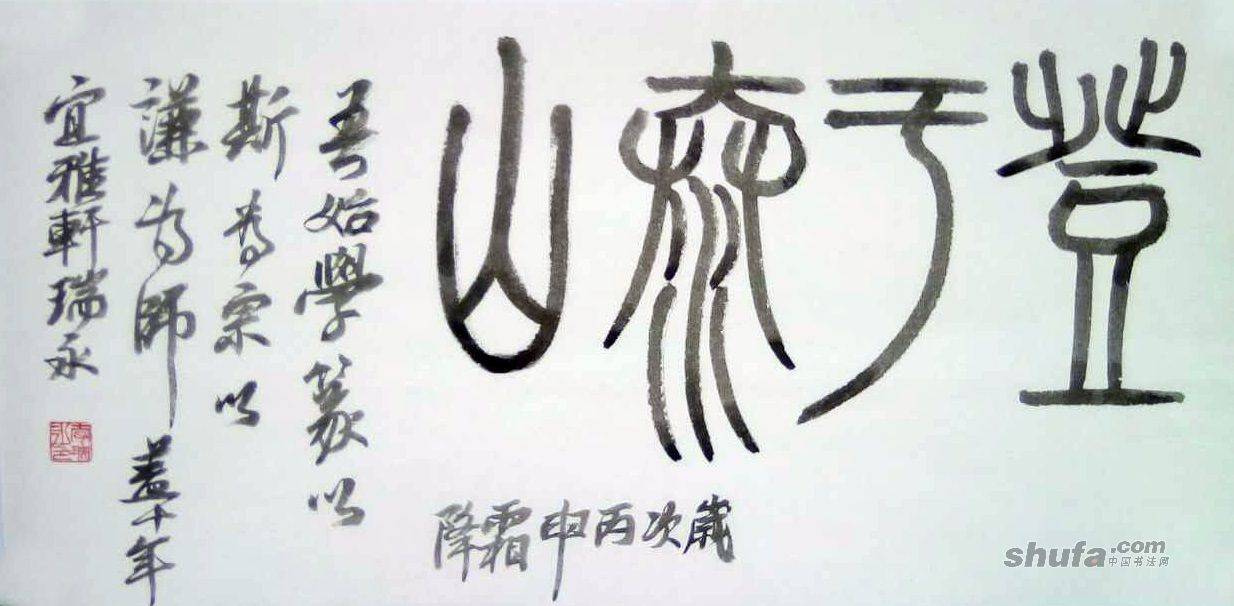 登于泰山
歲次丙申霜降
吾始學篆以
斯為宗以
謙為師蓋十年
宜雅軒瑞永
shufa.com
中国书法网